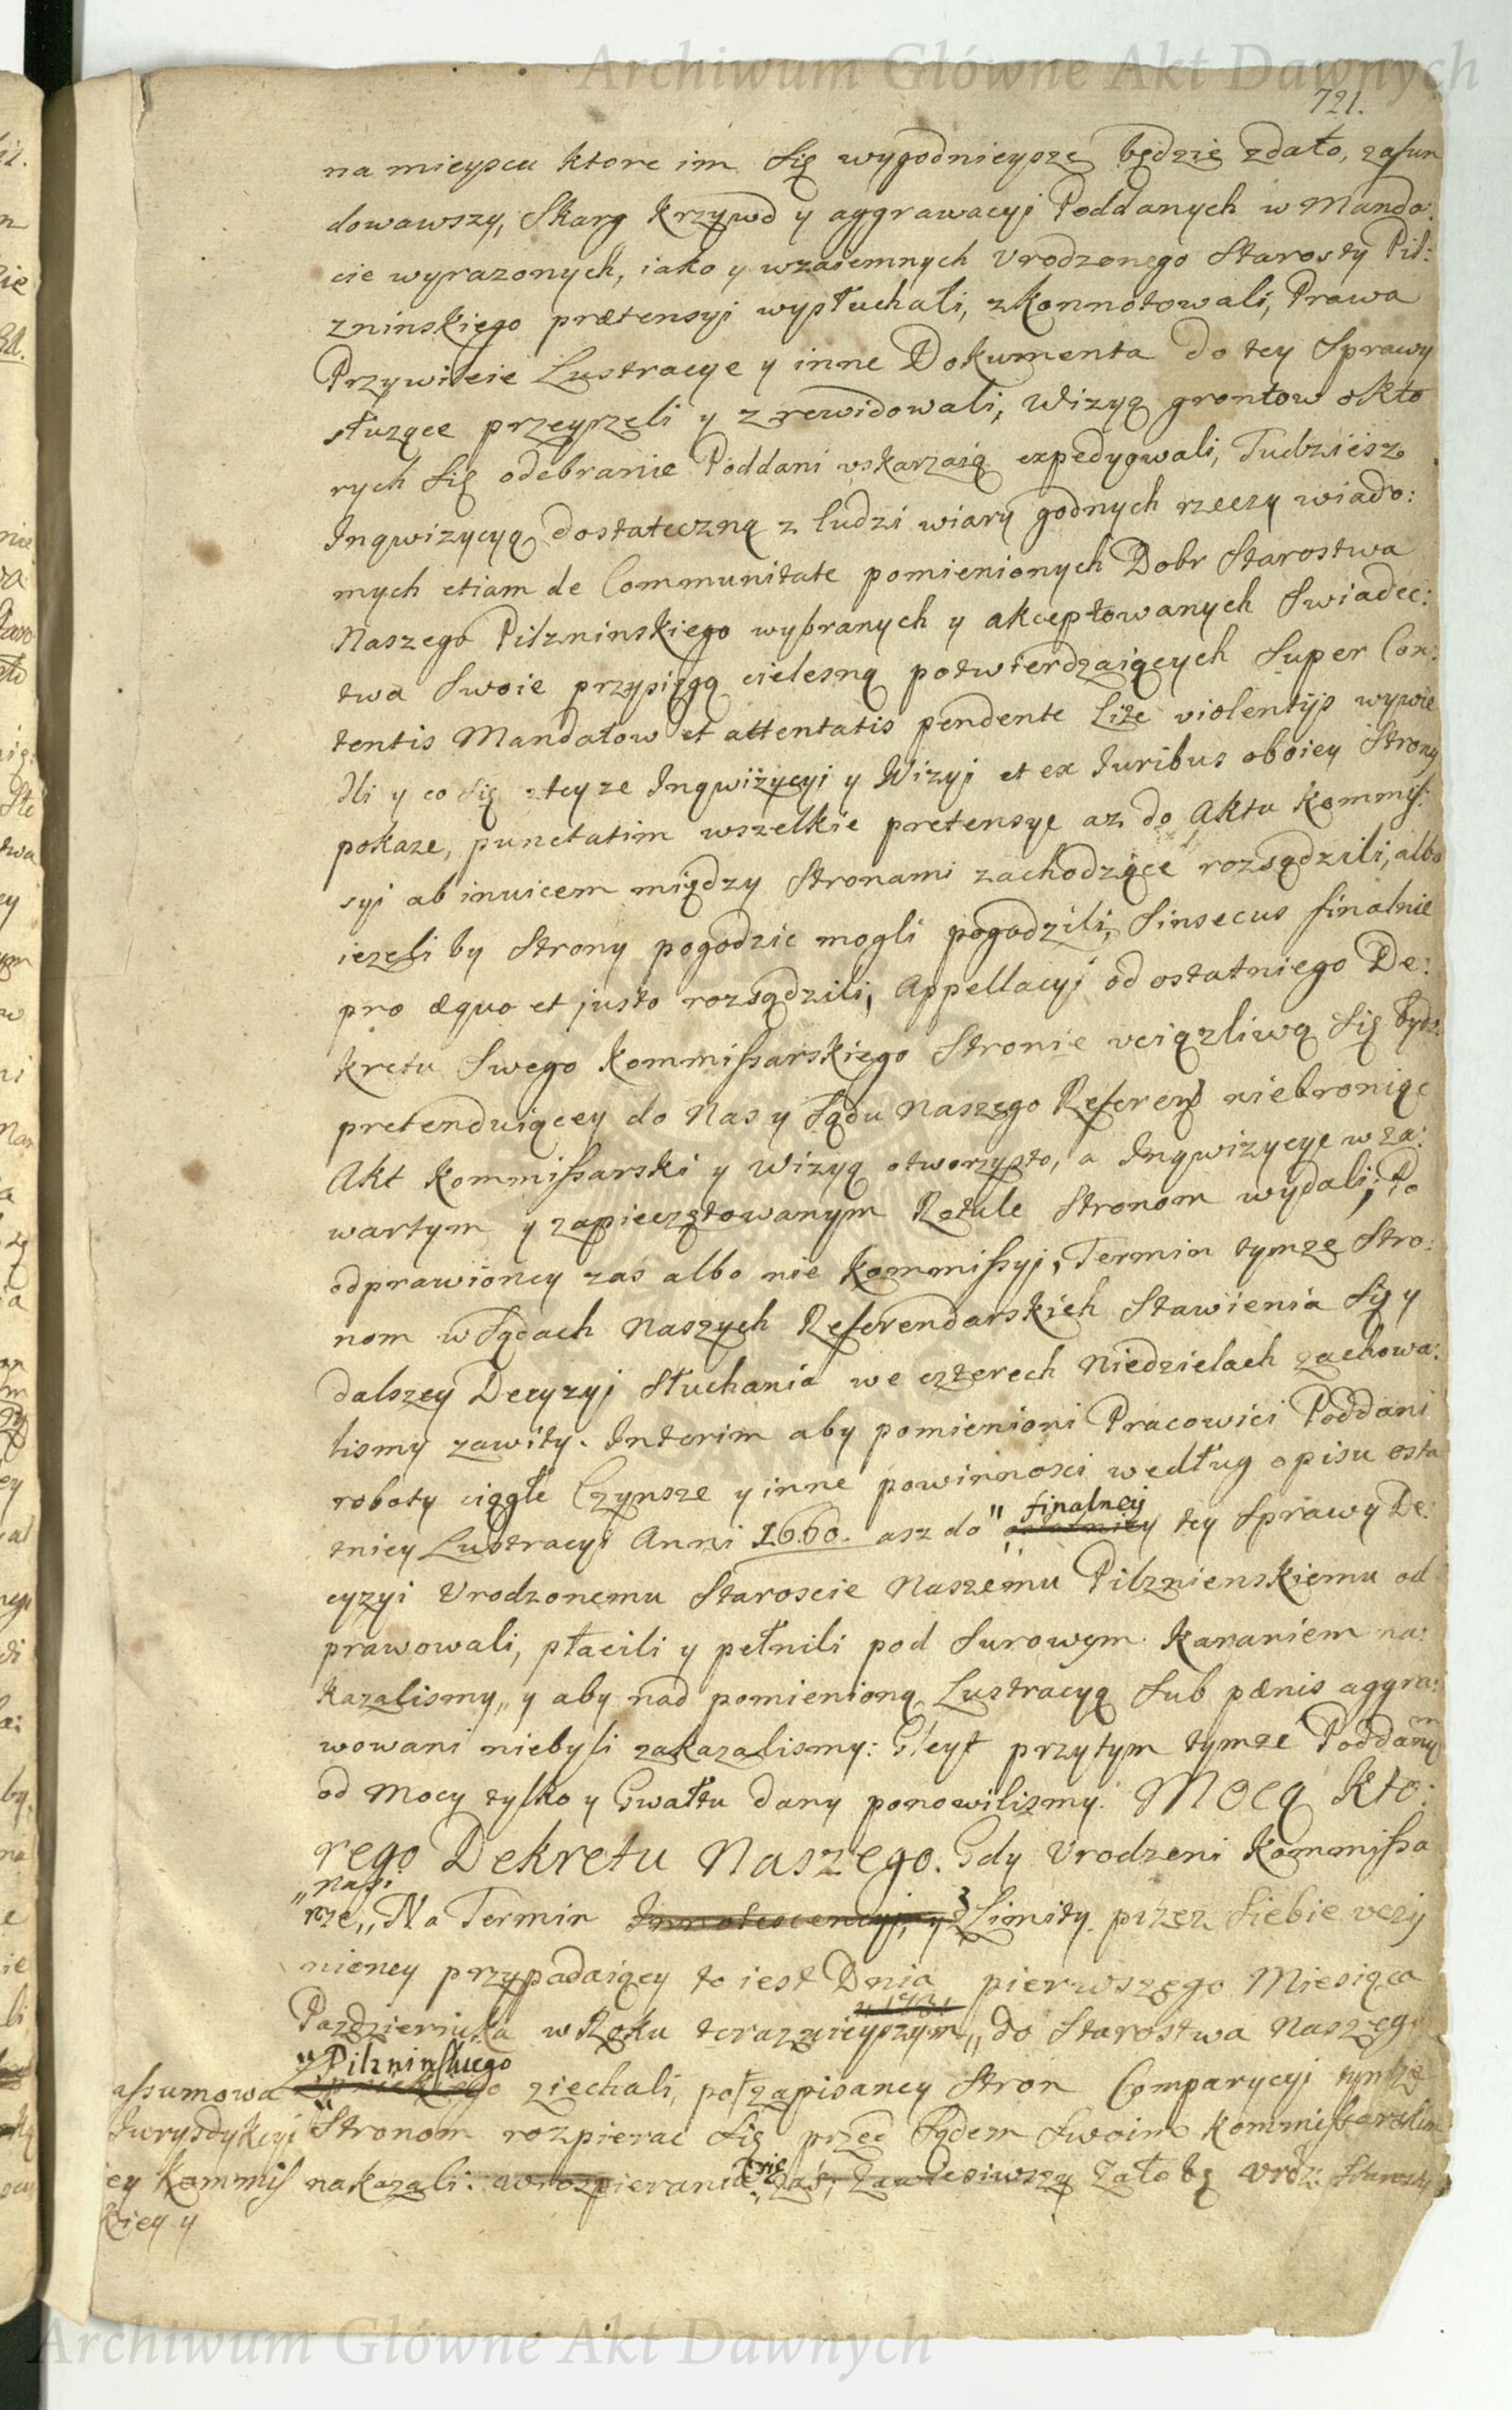 Archiwum Główne Akt Dawnych
721.
na mieyscu ktore im Się wygodnieysze będzie zdało, zafun
dowawszy, Skarg krzywd y aggrawacyi Poddanych w Manda:
cie wyrazonych, iako y wzaiemnych Urodzonego Starosty Pil:
zninskiego prætensyi wysłuchali, zkonnotowali, Prawa
Przywileie Lustracye y inne Dokumenta do tey Sprawy
słuzące przeyrzeli y zrewidowali, Wizyą grontow o kto
rych Się odebranie Poddani uskarzaią expedyowali, Tudziesz
Inqwizycyą dostateczną z ludzi wiary godnych rzeczy wiado:
mych etiam de Communitate pomienionych Dobr Starostwa
Naszego Pilzninskiego wybranych y akceptowanych Swiadec:
twa Swoie przysięgą cielesną potwierdzaiących Super Con:
tentis Mandatow et attentatis pendente Lite violentijs wywie
dli y co Się z teyze Inqwizycyi y Wizyi et ex Juribus oboiey Strony
pokaze, punctatim wszelkie pretensye az do Aktu Kommis:
syi ab invicem między Stronami zachodzące rozsądzili, albo
iezeli by Strony pogodzic mogli pogodzili, Sinsecus finalnie
pro æquo et justo rozsądzili, Appellacyi od ostatniego De:
kretu Swego Kommissarskiego Stronie uciązliwą Się bydz
pretenduiącey do Nas y Sądu Naszego Referend niebroniąc
Akt Kommissarski y Wizyą otworzysto, a Inqwizycye w za:
wartym y zapieczętowanym Rotule Stronom wydali; Po
odprawioney zas albo nie Kommissyi, Termin tymze Stro:
nom w Sądach Naszych Referendarskich Stawienia Się y
dalszey Decyzyi Słuchania we czterech Niedzielach zachowa:
lismy zawity. Interim aby pomienioni Pracowici Poddani
roboty ciągłe Czynsze y inne powinnosci według opisu osta
tniey Lustracyi Anni 1660. asz do " finalney tey Sprawy De:
cyzyi Urodzonemu Staroscie Naszemu Pilznienskiemu od
prawowali, płacili y pełnili pod Surowym karaniem na:
kazalismy, y aby nad pomienioną Lustracyą Sub pænis aggra:
wowani niebyli zakazalismy: Gleyt przytym tymze Poddanym
od Mocy tylko y Gwałtu dany ponowilismy. Mocą kto:
rego Dekretu Naszego. Gdy Urodzeni Kommissa
rze „ Nasi „ Na Termin Innotescencyi, y z Limity przez Siebie uczy
nioney przypadaiący to iest Dnia pierwszego Miesiąca
Pazdziernika w Roku teraznieyszym „ do Starostwa Naszego
" Pilzninskiego ziechali, po zapisaney Stron Comparycyi tymze
assumowa
Jurysdykcyi
ey Kommis
kiey y
Stronom rozpierac Się przed Sądem Swoim Kommissarskim
nakazali: w rozpieraniu Się zas, Zawiesiwszy Załobę Urodz: Starosty
Archiwum Główne Akt Dawnych